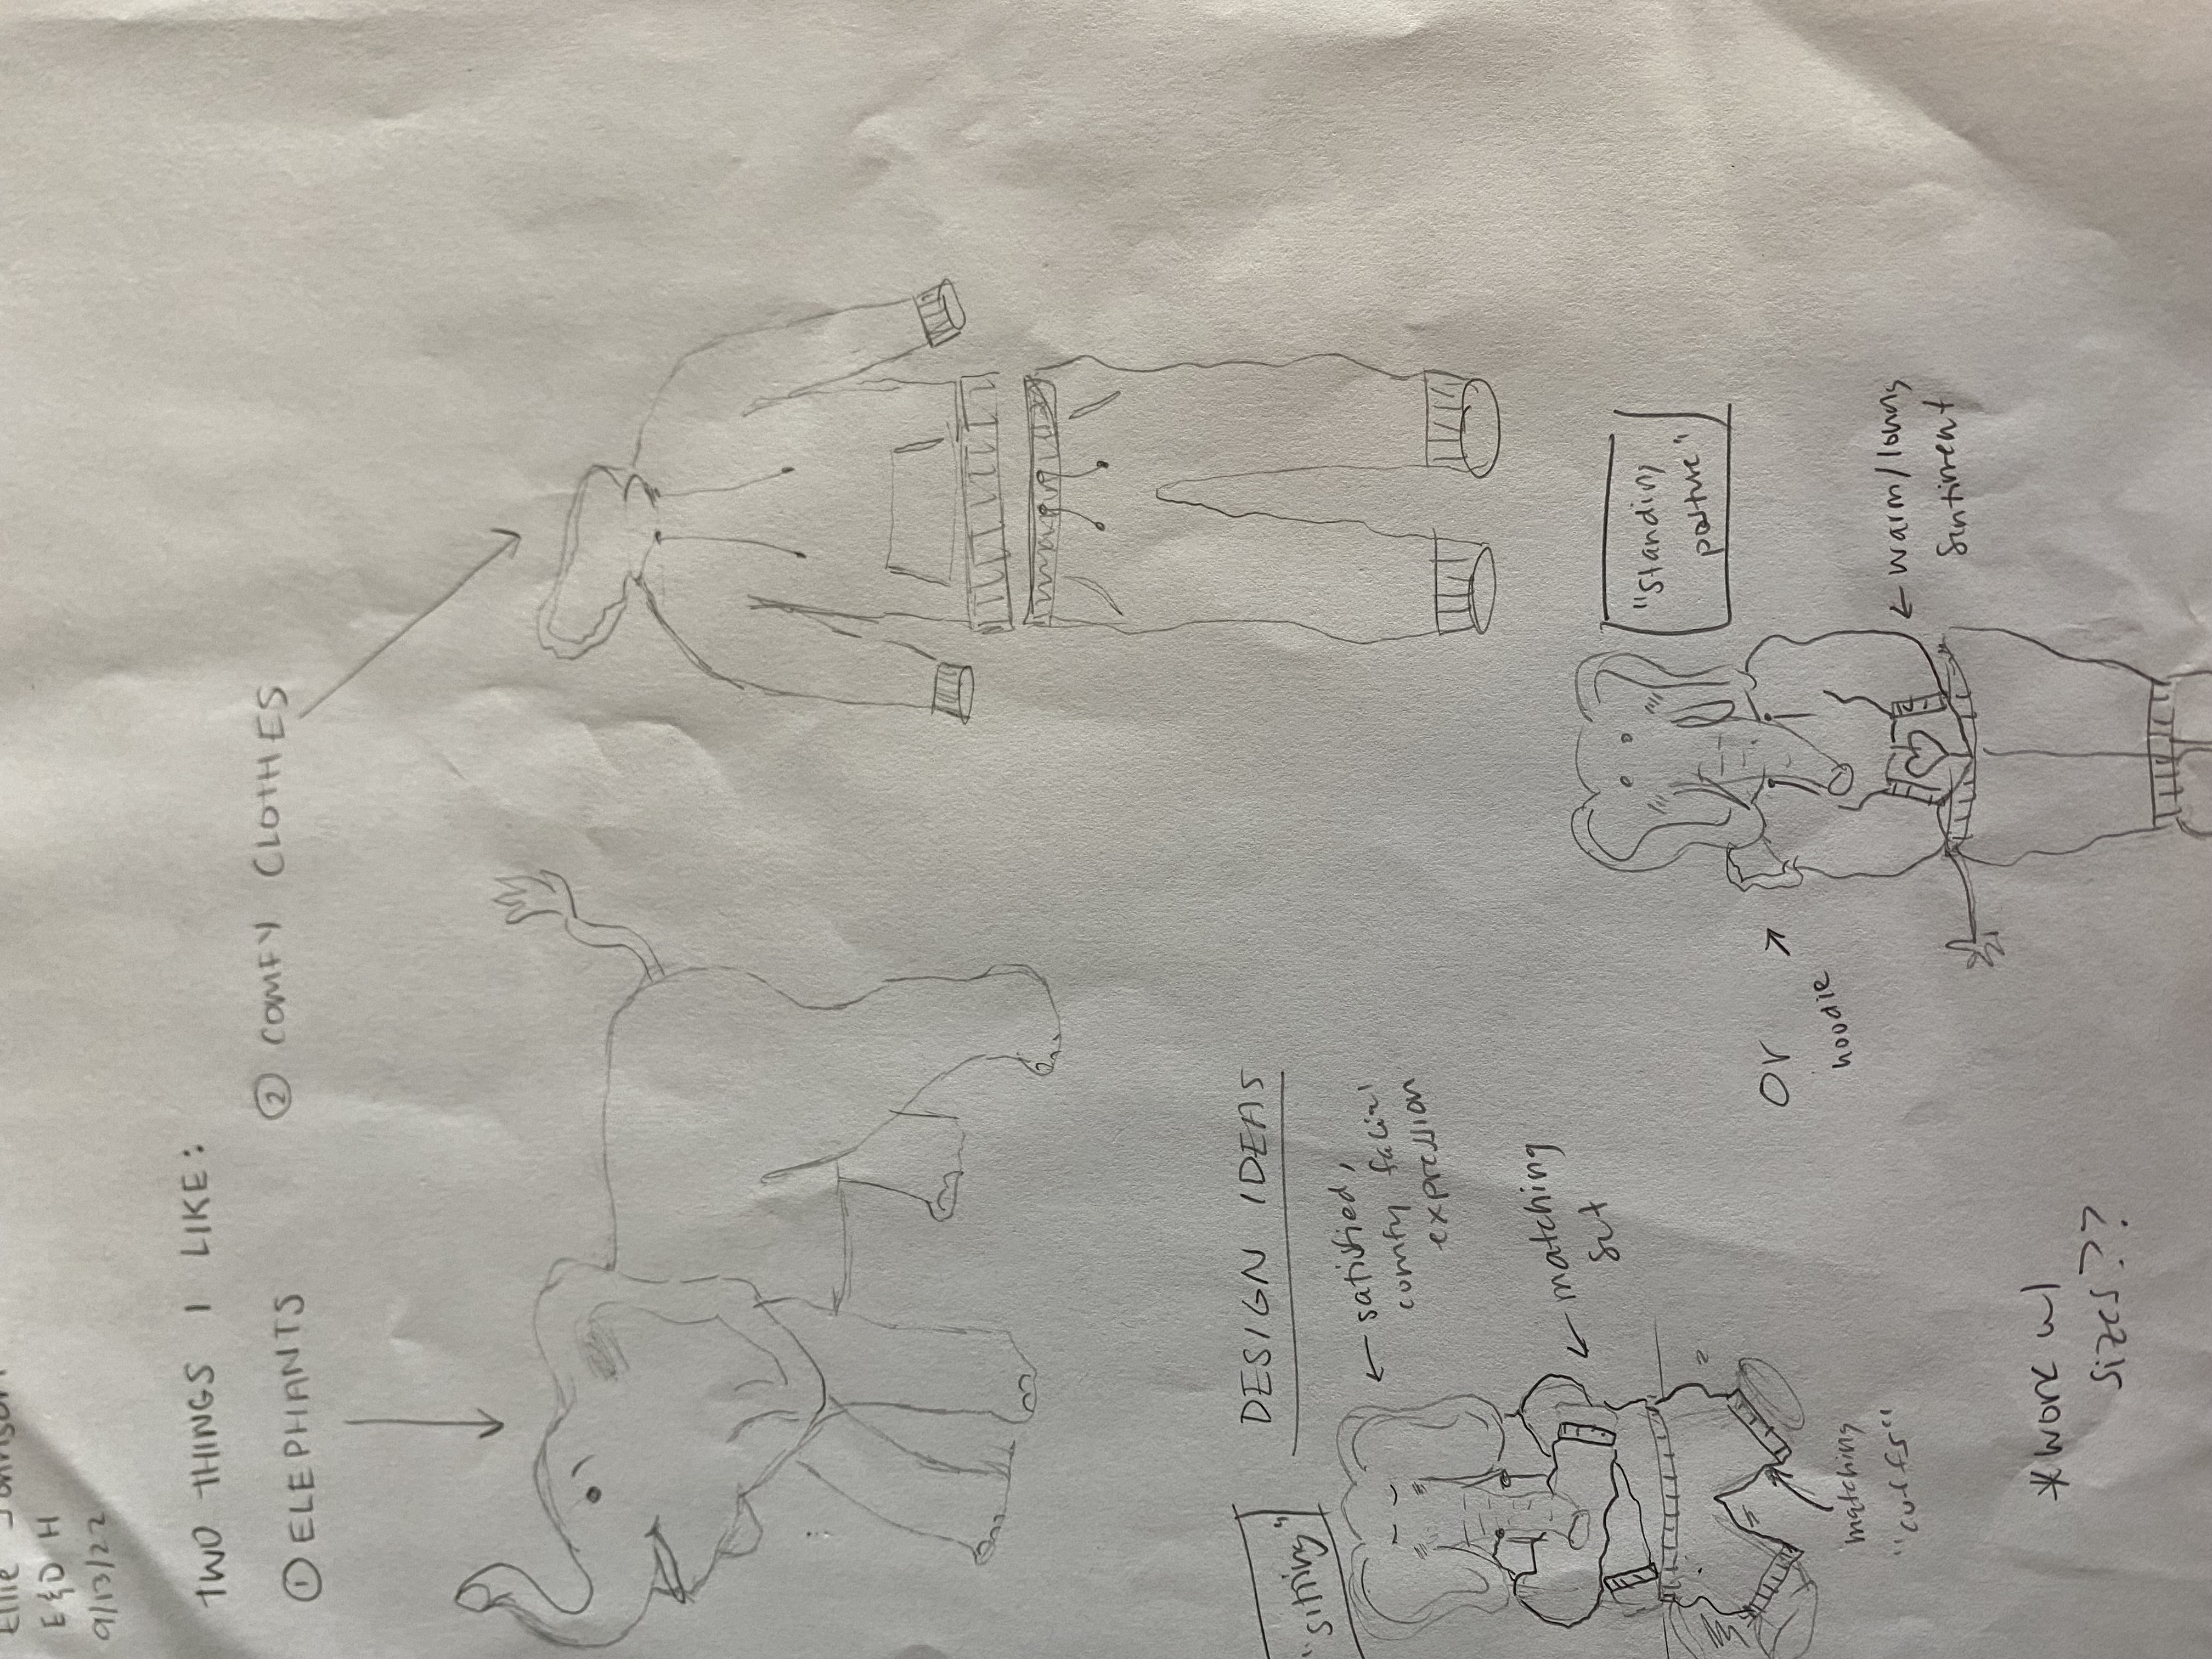 Ellie Johnson
E&D H
9/13/22
TWO THINGS I LIKE:
① ELEPHANTS
② COMFY CLOTHES
DESIGN IDEAS
"sitting"
← satisfied,
comfy facial
expression
← matching
set
matching
"cuffs"
"standing
posture"
or
hoodie
← warm/loving
sentiment
*work w/
sizes??